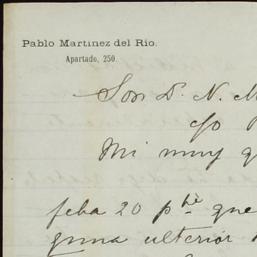 Pablo Martinez del Rio.
Apartado, 250.
Sor. D. N. M
c/o
Mi muy q
feha 20 ppdo que
guna ulterior